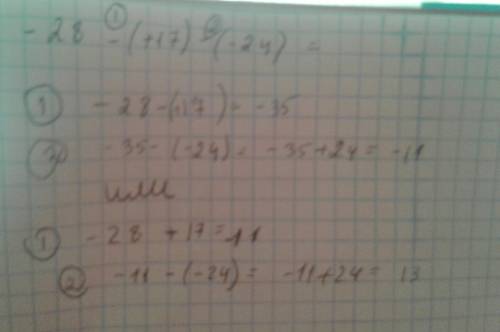 - 28 ① - (+17) ② - (-24) =
① - 28 - (+17) = -35
② - 35 - (-24) = - 35 + 24 = - 11
или
① - 28 + 17 = - 11
② - 11 - (-24) = - 11 + 24 = 13